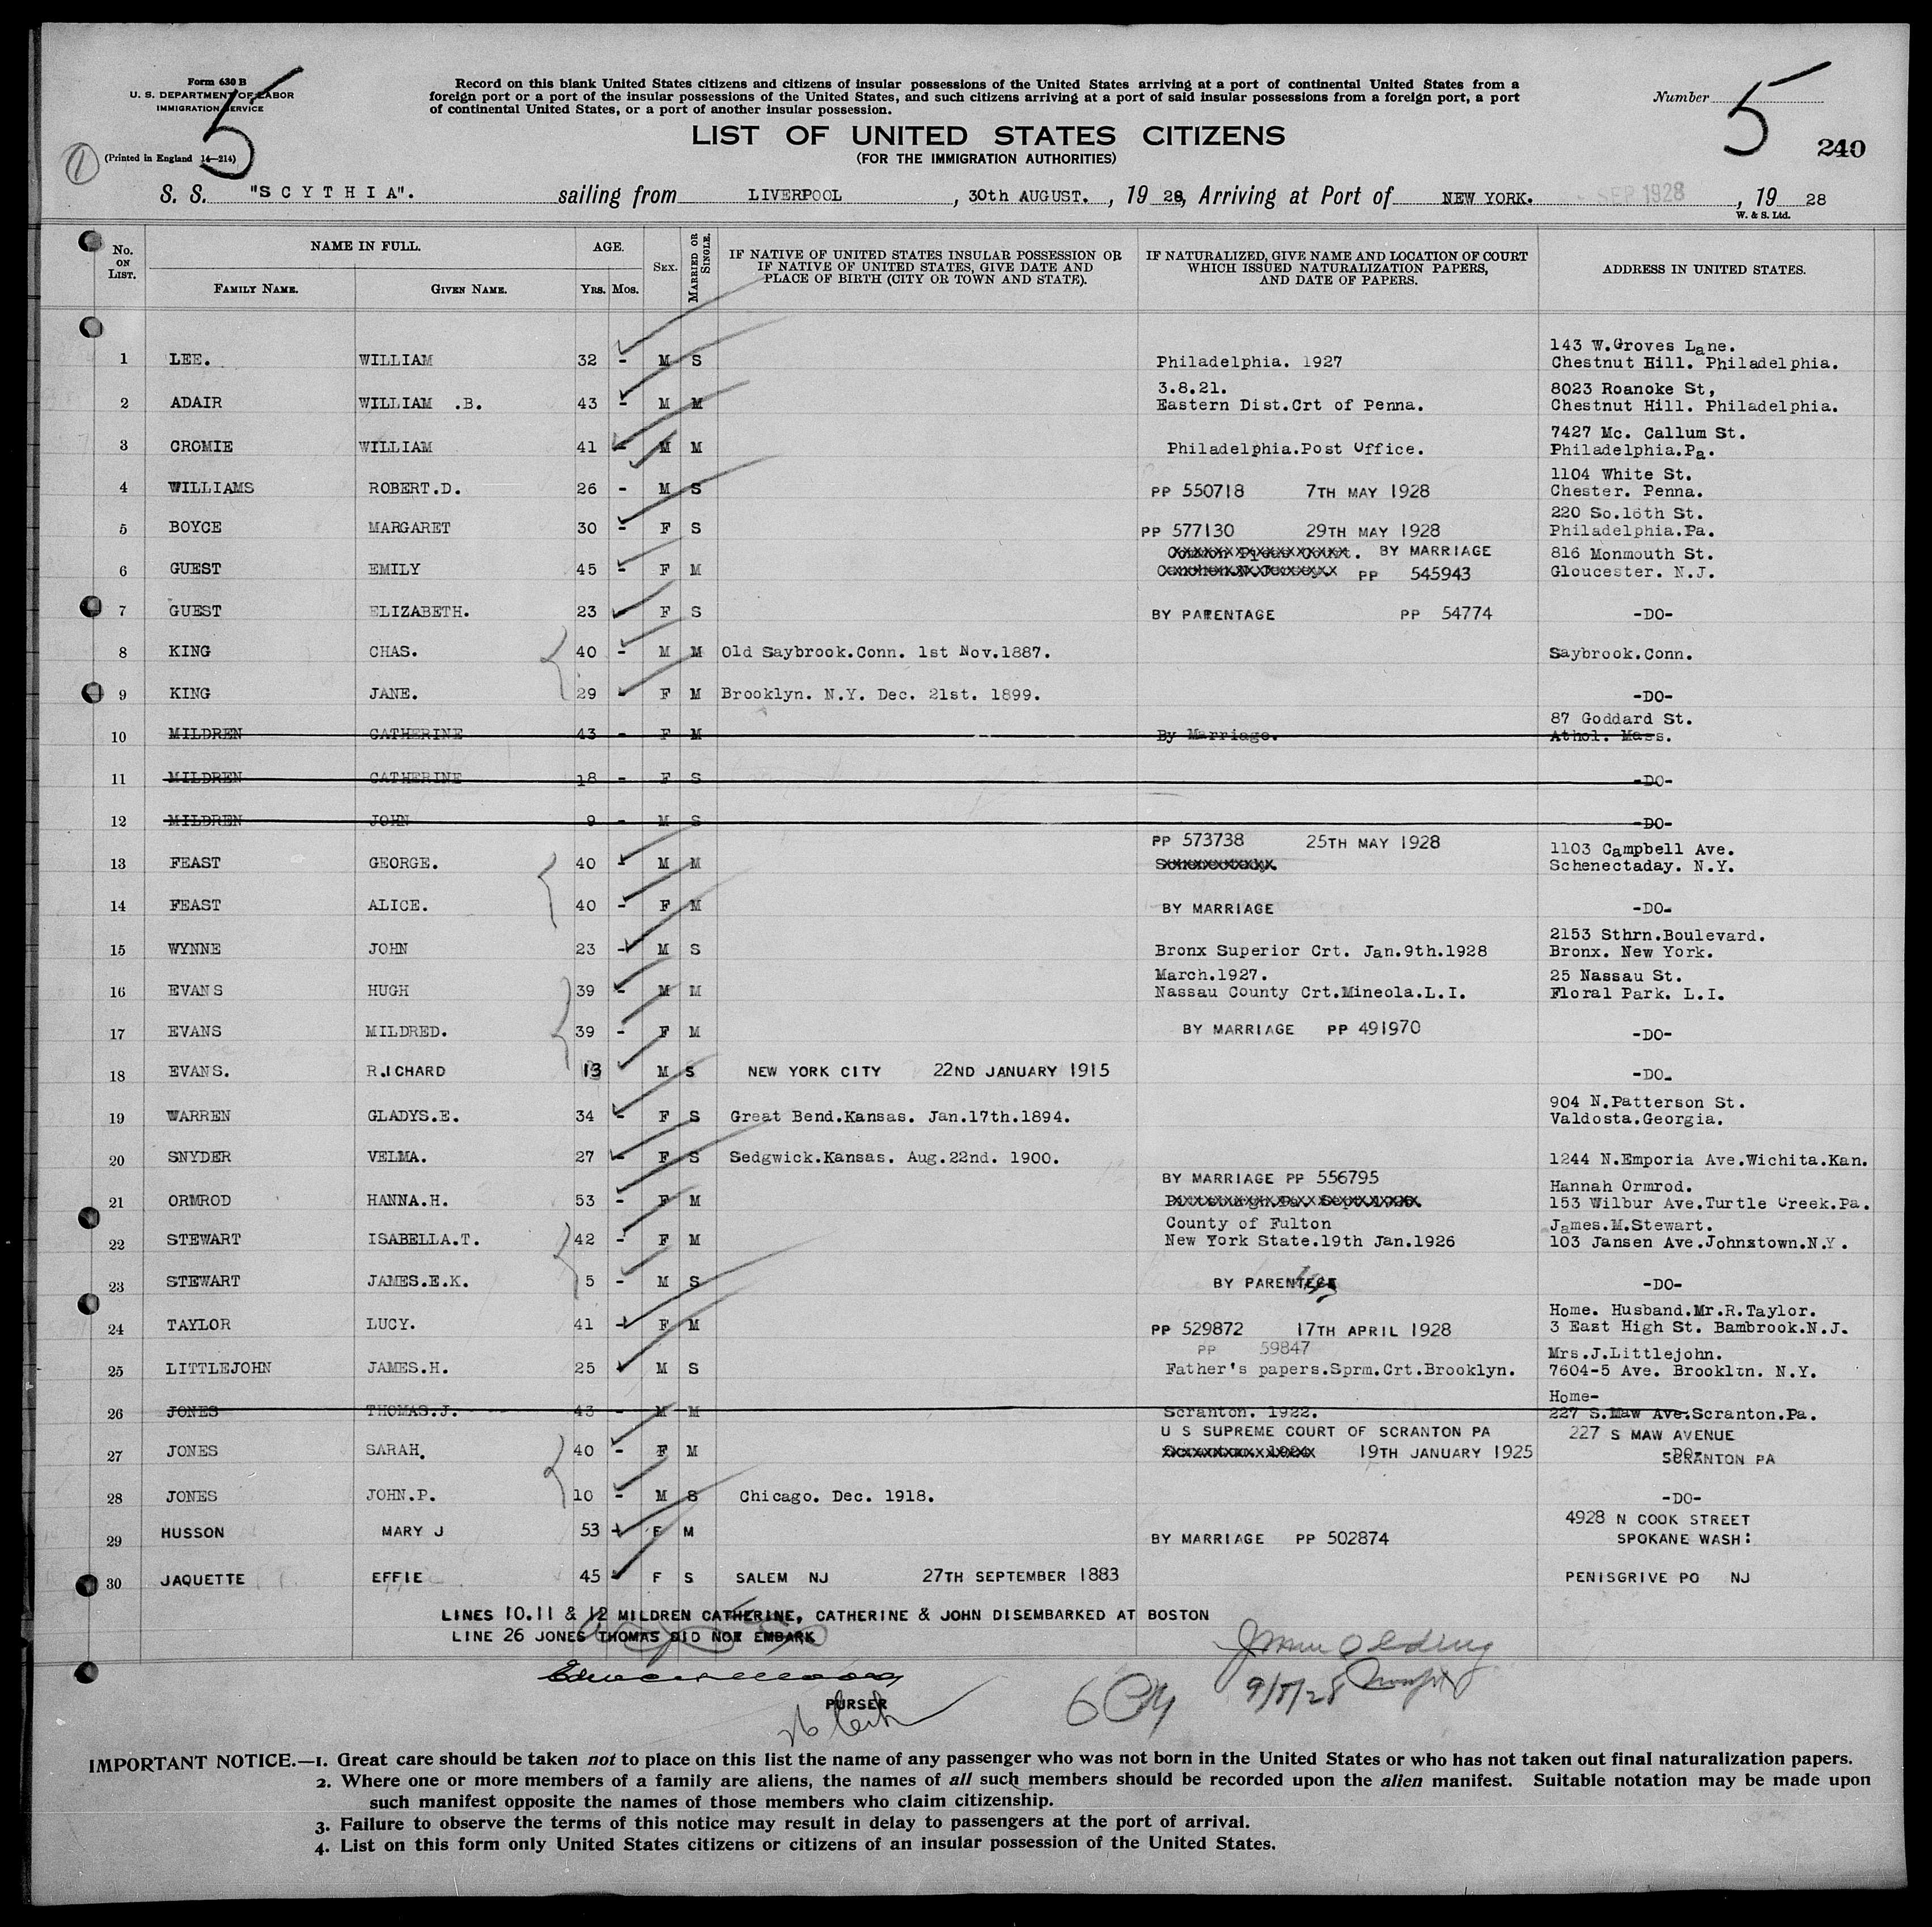 Form 630 B
U. S. DEPARTMENT OF LABOR
IMMIGRATION SERVICE
(Printed in England 14—214)
5
1
Record on this blank United States citizens and citizens of insular possessions of the United States arriving at a port of continental United States from a
foreign port or a port of the insular possessions of the United States, and such citizens arriving at a port of said insular possessions from a foreign port, a port
of continental United States, or a port of another insular possession.
Number 5
240
LIST OF UNITED STATES CITIZENS
(FOR THE IMMIGRATION AUTHORITIES)
S. S. "SCYTHIA". sailing from LIVERPOOL, 30th AUGUST., 19 28, Arriving at Port of NEW YORK. SEP 1928, 19 28
W. & S. Ltd.
No. ON LIST. NAME IN FULL. FAMILY NAME. GIVEN NAME. AGE. YRS. MOS. SEX. MARRIED OR SINGLE. IF NATIVE OF UNITED STATES INSULAR POSSESSION OR IF NATIVE OF UNITED STATES, GIVE DATE AND PLACE OF BIRTH (CITY OR TOWN AND STATE). IF NATURALIZED, GIVE NAME AND LOCATION OF COURT WHICH ISSUED NATURALIZATION PAPERS, AND DATE OF PAPERS. ADDRESS IN UNITED STATES.
143 W.Groves Lane.
1 LEE. WILLIAM 32 - M S Philadelphia. 1927 Chestnut Hill. Philadelphia.
3.8.21. 8023 Roanoke St,
2 ADAIR WILLIAM .B. 43 - M M Eastern Dist.Crt of Penna. Chestnut Hill. Philadelphia.
7427 Mc. Callum St.
3 CROMIE WILLIAM 41 - M M Philadelphia.Post Office. Philadelphia.Pa.
1104 White St.
4 WILLIAMS ROBERT.D. 26 - M S PP 550718 7TH MAY 1928 Chester. Penna.
220 So.16th St.
5 BOYCE MARGARET 30 - F S PP 577130 29TH MAY 1928 Philadelphia.Pa.
BY MARRIAGE 816 Monmouth St.
6 GUEST EMILY 45 - F M PP 545943 Gloucester. N.J.
7 GUEST ELIZABETH. 23 - F S BY PARENTAGE PP 54774 -DO-
8 KING CHAS. 40 - M M Old Saybrook.Conn. 1st Nov.1887. Saybrook.Conn.
9 KING JANE. 29 - F M Brooklyn. N.Y. Dec. 21st. 1899. -DO-
87 Goddard St.
10 MILDREN CATHERINE 43 - F M By Marriage. Athol. Mass.
11 MILDREN CATHERINE 18 - F S -DO-
12 MILDREN JOHN 9 - M S -DO-
PP 573738 25TH MAY 1928 1103 Campbell Ave.
13 FEAST GEORGE. 40 - M M Schenectaday. N.Y.
14 FEAST ALICE. 40 - F M BY MARRIAGE -DO-
2153 Sthrn.Boulevard.
15 WYNNE JOHN 23 - M S Bronx Superior Crt. Jan.9th.1928 Bronx. New York.
March.1927. 25 Nassau St.
16 EVANS HUGH 39 - M M Nassau County Crt.Mineola.L.I. Floral Park. L.I.
17 EVANS MILDRED. 39 - F M BY MARRIAGE PP 491970 -DO-
18 EVANS. R.ICHARD 13 M S NEW YORK CITY 22ND JANUARY 1915 -DO-
904 N.Patterson St.
19 WARREN GLADYS.E. 34 - F S Great Bend.Kansas. Jan.17th.1894. Valdosta.Georgia.
20 SNYDER VELMA. 27 - F S Sedgwick.Kansas. Aug.22nd. 1900. 1244 N.Emporia Ave.Wichita.Kan.
BY MARRIAGE PP 556795 Hannah Ormrod.
21 ORMROD HANNA.H. 53 - F M 153 Wilbur Ave.Turtle Creek.Pa.
County of Fulton James.M.Stewart.
22 STEWART ISABELLA.T. 42 - F M New York State.19th Jan.1926 103 Jansen Ave.Johnstown.N.Y.
23 STEWART JAMES.E.K. 5 - M S BY PARENTEGE -DO-
Home. Husband.Mr.R.Taylor.
24 TAYLOR LUCY. 41 - F M PP 529872 17TH APRIL 1928 3 East High St. Bambrook.N.J.
PP 59847 Mrs.J.Littlejohn.
25 LITTLEJOHN JAMES.H. 25 M S Father's papers.Sprm.Crt.Brooklyn. 7604-5 Ave. Brookltn. N.Y.
Home-
26 JONES THOMAS.J. 43 - M M Scranton. 1922. 227 S.Maw Ave.Scranton.Pa.
U S SUPREME COURT OF SCRANTON PA 227 S MAW AVENUE
27 JONES SARAH. 40 - F M 19TH JANUARY 1925 -DO- SCRANTON PA
28 JONES JOHN.P. 10 - M S Chicago. Dec. 1918. -DO-
4928 N COOK STREET
29 HUSSON MARY J 53 - F M BY MARRIAGE PP 502874 SPOKANE WASH:
30 JAQUETTE EFFIE 45 F S SALEM NJ 27TH SEPTEMBER 1883 PENISGRIVE PO NJ
LINES 10.11 & 12 MILDREN CATHERINE, CATHERINE & JOHN DISEMBARKED AT BOSTON
LINE 26 JONES THOMAS DID NOT EMBARK
PURSER
9/8/28
IMPORTANT NOTICE.—1. Great care should be taken not to place on this list the name of any passenger who was not born in the United States or who has not taken out final naturalization papers.
2. Where one or more members of a family are aliens, the names of all such members should be recorded upon the alien manifest. Suitable notation may be made upon
such manifest opposite the names of those members who claim citizenship.
3. Failure to observe the terms of this notice may result in delay to passengers at the port of arrival.
4. List on this form only United States citizens or citizens of an insular possession of the United States.